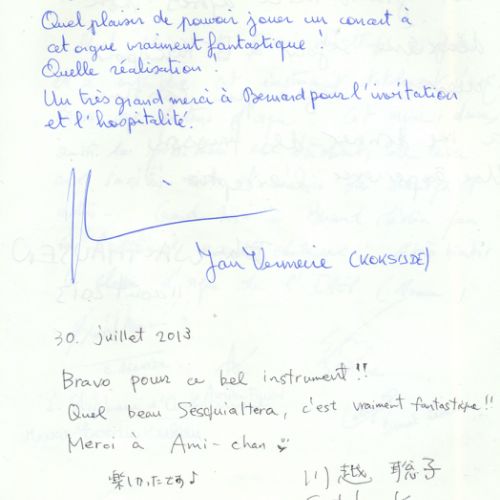 Quel plaisir de pouvoir jouer un concert à
cet orgue vraiment fantastique !
Quelle réalisation !
Un très grand merci à Bernard pour l'invitation
et l'hospitalité.
Jan Vermeire (KOKSIJDE)
30. juillet 2013
Bravo pour ce bel instrument !!
Quel beau Sesquialtera, c'est vraiment fantastique !!
Merci à Ami-chan
楽しかったです♪
川越 聡子